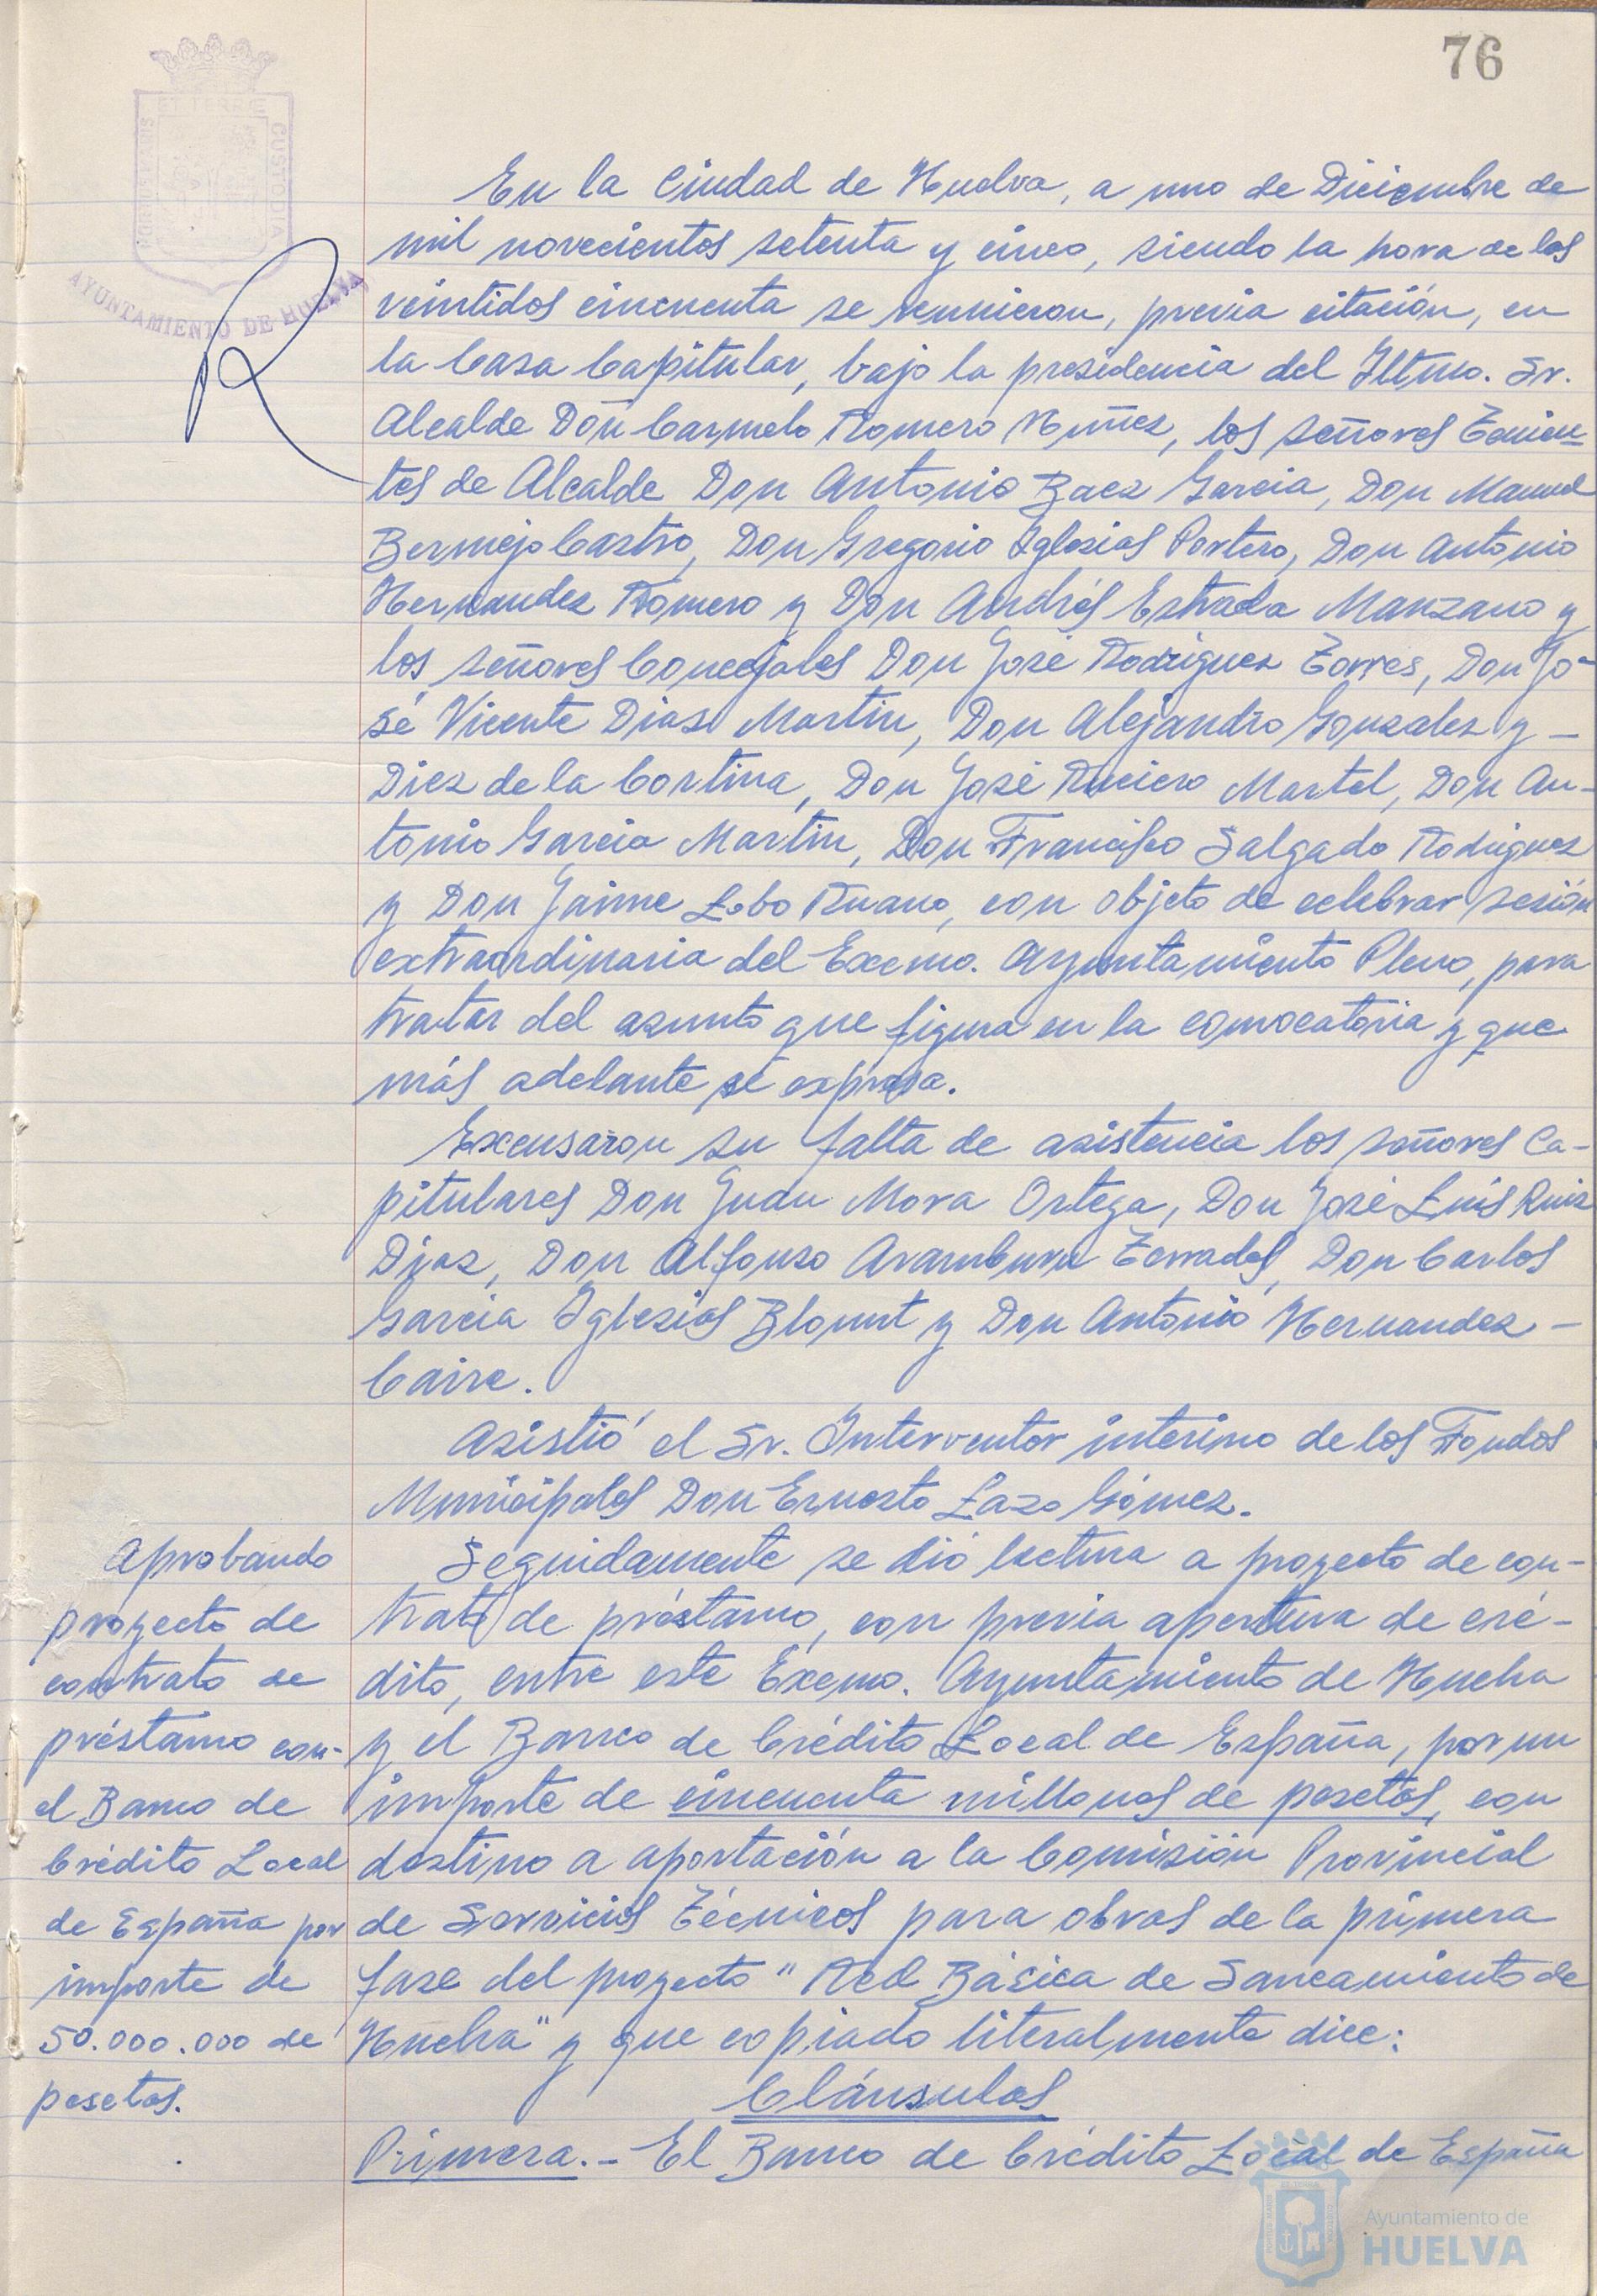 76
PORTUS MARIS ET TERRE CUSTODIA
AYUNTAMIENTO DE HUELVA
En la Ciudad de Huelva, a uno de Diciembre de
mil novecientos setenta y cinco, siendo la hora de las
veintidos cincuenta se reunieron, previa citación, en
la Casa Capitular, bajo la presidencia del Iltmo. Sr.
Alcalde Don Carmelo Romero Nuñez, los señores Tenien-
tes de Alcalde Don Antonio Baez Garcia, Don Manuel
Bermejo Castro, Don Gregorio Iglesias Portero, Don Antonio
Hernandez Romero y Don Andrés Estrada Manzano y
los señores Concejales Don José Rodriguez Torres, Don Jo-
sé Vicente Dias Martin, Don Alejandro Gonzalez y -
Diez de la Cortina, Don José Ruciero Martel, Don An-
tonio Garcia Martin, Don Francisco Salgado Rodriguez
y Don Jaime Lobo Ruano, con objeto de celebrar sesión
extraordinaria del Excmo. Ayuntamiento Pleno, para
tratar del asunto que figura en la convocatoria y que
más adelante se expresa.
Excusaron su falta de asistencia los señores Ca-
pitulares Don Juan Mora Ortega, Don José Luis Ruiz
Diaz, Don Alfonso Aramburu Terrades, Don Carlos
Garcia Iglesias Blount y Don Antonio Hernandez -
Caire.
Asistió el Sr. Interventor interino de los Fondos
Municipales Don Ernesto Lazo Gómez.
Aprobando
proyecto de
contrato de
préstamo con-
el Banco de
Crédito Local
de España por
importe de
50.000.000 de
pesetas.
Seguidamente se dió lectura a proyecto de con-
trato de préstamo, con previa apertura de cré-
dito, entre este Excmo. Ayuntamiento de Huelva
y el Banco de Crédito Local de España, por un
importe de cincuenta millones de pesetas, con
destino a aportación a la Comisión Provincial
de Servicios Técnicos para obras de la primera
fase del proyecto "Red Básica de Saneamiento de
Huelva" y que copiado literalmente dice:
Cláusulas
Primera.- El Banco de Crédito Local de España
Ayuntamiento de
HUELVA